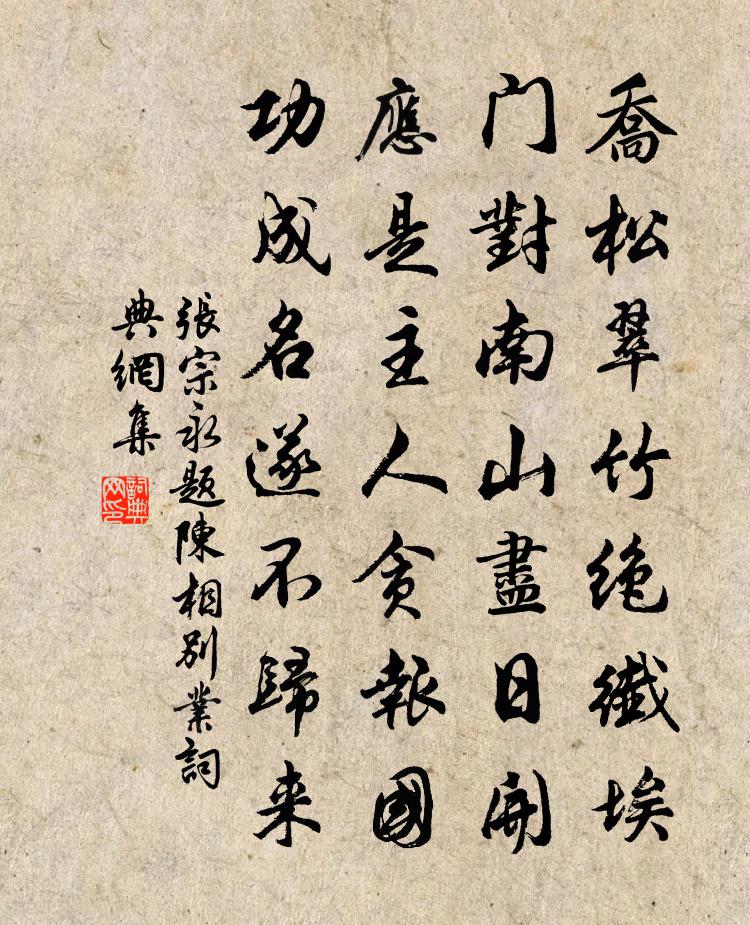 喬松翠竹絶纖埃
門對南山盡日開
應是主人貪報國
功成名遂不歸来
張宗永題陳相别業詞
典網集
詞典
网印